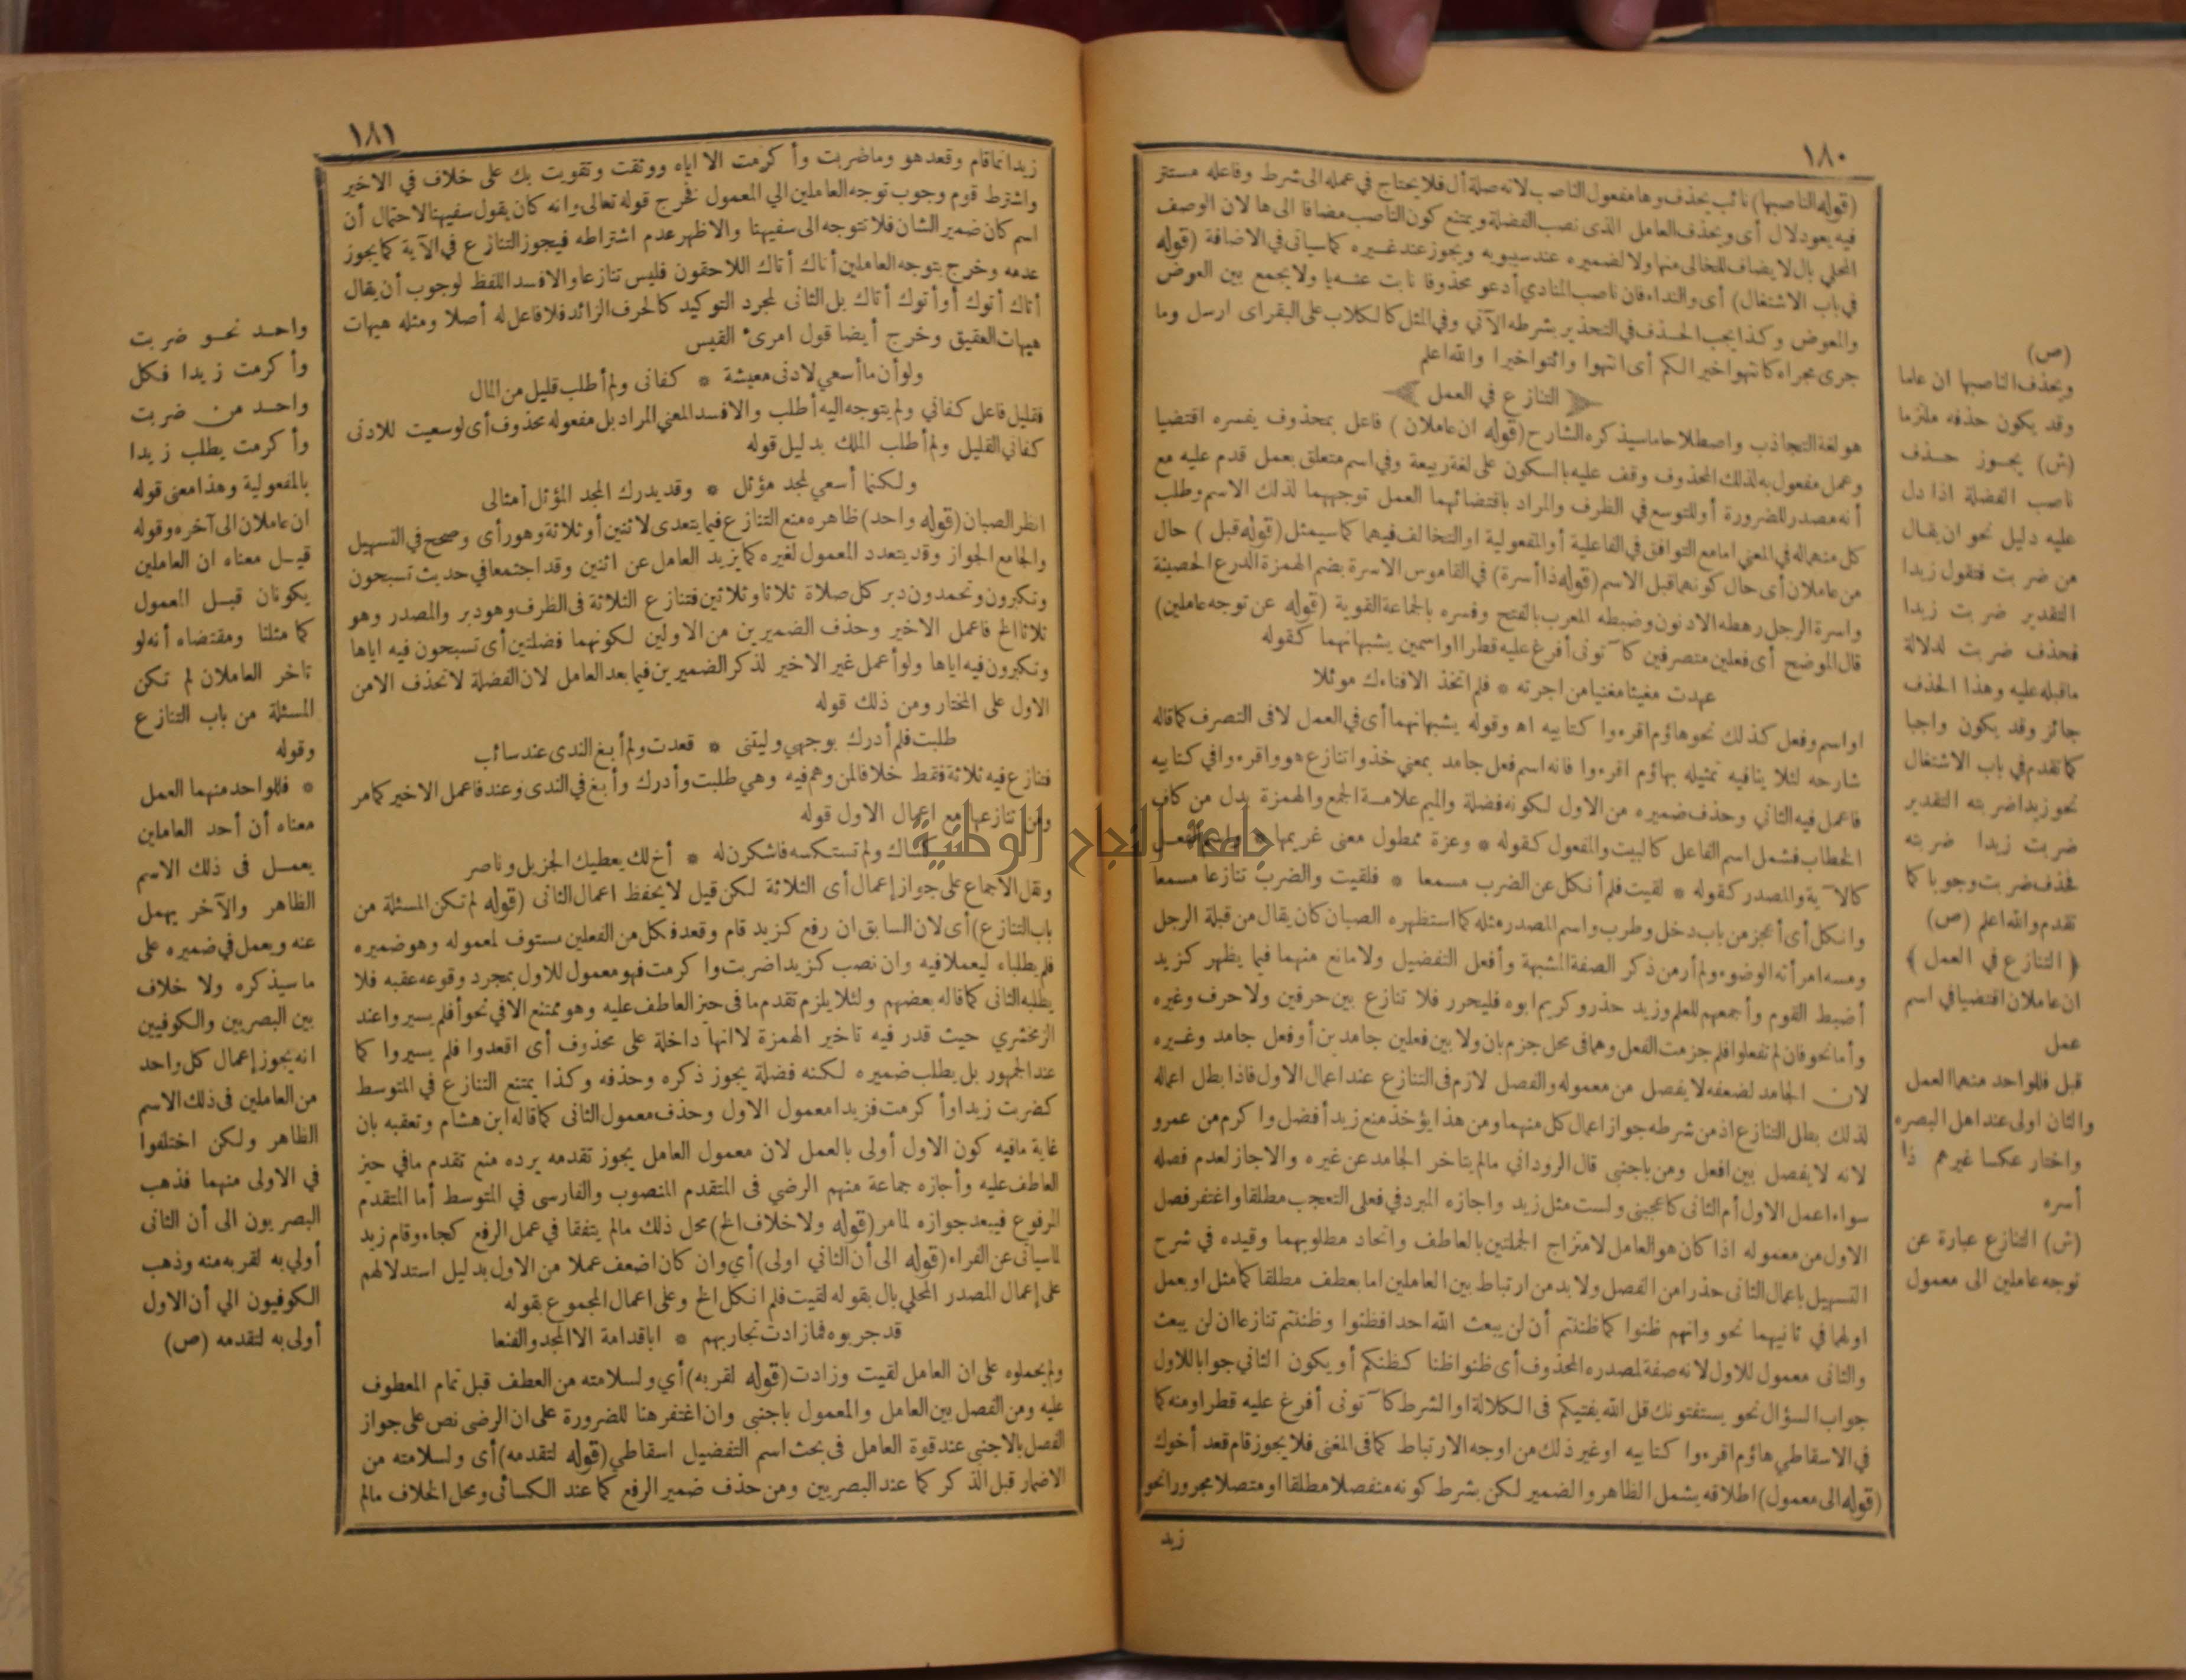 ١٨٠
(قوله الناصبها) نائب يحذف وها مفعول الناصب لانه صلة أل فلا يحتاج في عمله الى شرط وفاعله مستتر
فيه يعود لال أى ويحذف العامل الذى نصب الفضلة ويمتنع كون الناصب مضافا الى ها لان الوصف
المحلي بال لا يضاف للخالى منها ولا لضميره عند سيبويه ويجوز عند غيره كما سيأتى في الاضافة (قوله
في باب الاشتغال) أى والنداء فان ناصب المنادي أدعو محذوفا نابت عنه يا ولا يجمع بين العوض
والمعوض وكذا يجب الحذف في التحذير بشرطه الآتي وفي المثل كالكلاب على البقر اى ارسل وما
جرى مجراه كانتهوا خيرا لكم أى انتهوا وائتوا خيرا والله اعلم
التنازع في العمل
هو لغة التجاذب واصطلاحا ما سيذكره الشارح (قوله ان عاملان) فاعل بمحذوف يفسره اقتضيا
وعمل مفعول به لذلك المحذوف وقف عليه بالسكون على لغة ربيعة وفي اسم متعلق بعمل قدم عليه مع
أنه مصدر للضرورة أو للتوسع في الظرف والمراد باقتضائهما العمل توجههما لذلك الاسم وطلب
كل منهما له في المعنى اما مع التوافق في الفاعلية أو المفعولية او التخالف فيهما كما سيمثل (قوله قبل) حال
من عاملان أى حال كونهما قبل الاسم (قوله ذا أسرة) في القاموس الاسرة بضم الهمزة الدرع الحصينة
واسرة الرجل رهطه الادنون وضبطه المعرب بالفتح وفسره بالجماعة القوية (قوله عن توجه عاملين)
قال الموضح أى فعلين متصرفين كآتونى أفرغ عليه قطرا او اسمين يشبهانهما كقوله
عهدت مغيثا مغنيا من اجرته * فلم اتخذ الا فناءك موئلا
او اسم وفعل كذلك نحو هاؤم اقرءوا كتابيه اه وقوله يشبهانهما أى في العمل لافى التصرف كما قاله
شارحه لئلا ينافيه تمثيله بهاؤم اقرءوا فانه اسم فعل جامد بمعنى خذوا تنازع هو واقرءوا في كتابيه
فاعمل فيه الثاني وحذف ضميره من الاول لكونه فضلة والميم علامة الجمع والهمزة بدل من كاف
الخطاب فشمل اسم الفاعل كالبيت والمفعول كقوله * وعزة ممطول معنى غريمها * واسم الفعل
كالآية والمصدر كقوله * لقيت فلم أنكل عن الضرب مسمعا * فلقيت والضرب تنازعا مسمعا
وانكل أى أعجز من باب دخل وطرب واسم المصدر مثله كما استظهره الصبان كان يقال من قبلة الرجل
ومسه امرأته الوضوء ولم أر من ذكر الصفة المشبهة وأفعل التفضيل ولا مانع منهما فيما يظهر كزيد
أضبط القوم وأجمعهم للعلم وزيد حذر وكريم ابوه فليحرر فلا تنازع بين حرفين ولا حرف وغيره
وأما نحو فان لم تفعلوا فلم جزمت الفعل وهما فى محل جزم بان ولا بين فعلين جامدين أو فعل جامد وغيره
لان الجامد لضعفه لا يفصل من معموله والفصل لازم فى التنازع عند اعمال الاول فاذا بطل اعماله
لذلك بطل التنازع اذ من شرطه جواز اعمال كل منهما ومن هذا يؤخذ منع زيد أفضل واكرم من عمرو
لانه لا يفصل بين افعل ومن باجنبى قال الروداني مالم يتاخر الجامد عن غيره والا جاز لعدم فصله
سواء اعمل الاول أم الثانى كاعجبنى ولست مثل زيد واجازه المبرد في فعلى التعجب مطلقا واغتفر فصل
الاول من معموله اذا كان هو العامل لامتزاج الجملتين بالعاطف واتحاد مطلوبهما وقيده في شرح
التسهيل باعمال الثانى حذرا من الفصل ولا بد من ارتباط بين العاملين اما بعطف مطلقا كما مثل او بعمل
اولهما في ثانيهما نحو وانهم ظنوا كما ظننتم أن لن يبعث الله احدا فظنوا وظننتم تنازعا ان لن يبعث
والثانى معمول للاول لانه صفة لمصدره المحذوف أى ظنوا ظنا كظنكم أو يكون الثاني جوابا للاول
جواب السؤال نحو يستفتونك قل الله يفتيكم فى الكلالة او الشرط كآتونى أفرغ عليه قطرا ومنه كما
في الاسقاطي هاؤم اقرءوا كتابيه او غير ذلك من اوجه الارتباط كما فى المغنى فلا يجوز قام قعد أخوك
(قوله الى معمول) اطلاقه يشمل الظاهر والضمير لكن بشرط كونه منفصلا مطلقا او متصلا مجرورا نحو
زيد
(ص)
ويحذف الناصبها ان علما
وقد يكون حذفه ملتزما
(ش) يجوز حذف
ناصب الفضلة اذا دل
عليه دليل نحو ان يقال
من ضربت فتقول زيدا
التقدير ضربت زيدا
فحذف ضربت لدلالة
ماقبله عليه وهذا الحذف
جائز وقد يكون واجبا
كما تقدم في باب الاشتغال
نحو زيدا ضربته التقدير
ضربت زيدا ضربته
فحذف ضربت وجوبا كما
تقدم والله اعلم (ص)
﴿ التنازع في العمل ﴾
ان عاملان اقتضيا في اسم
عمل
قبل فللواحد منهما العمل
والثان اولى عند اهل البصره
واختار عكسا غيرهم ذا
أسره
(ش) التنازع عبارة عن
توجه عاملين الى معمول
١٨١
زيد انما قام وقعد هو وما ضربت وأكرمت الا اياه ووثقت وتقويت بك على خلاف في الاخير
واشترط قوم وجوب توجه العاملين الي المعمول فخرج قوله تعالى وانه كان يقول سفيهنا لاحتمال أن
اسم كان ضمير الشان فلا تتوجه الى سفيهنا والاظهر عدم اشتراطه فيجوز التنازع في الآية كما يجوز
عدمه وخرج بتوجه العاملين أتاك أتاك اللاحقون فليس تنازعا والا فسد اللفظ لوجوب أن يقال
أتاك أتوك أو أتوك أتاك بل الثانى لمجرد التوكيد كالحرف الزائد فلا فاعل له أصلا ومثله هيهات
هيهات العقيق وخرج أيضا قول امرئ القيس
ولو أن ما أسعي لادنى معيشة * كفانى ولم أطلب قليل من المال
فقليل فاعل كفاني ولم يتوجه اليه أطلب والا فسد المعني المراد بل مفعوله محذوف أى لو سعيت للادنى
كفاني القليل ولم أطلب الملك بدليل قوله
ولكنما أسعي لمجد مؤثل * وقد يدرك المجد المؤثل أمثالى
انظر الصبان (قوله واحد) ظاهره منع التنازع فيما يتعدى لاثنين أو ثلاثة وهو رأى وصحح في التسهيل
والجامع الجواز وقد يتعدد المعمول لغيره كما يزيد العامل عن اثنين وقد اجتمعا في حديث تسبحون
وتكبرون وتحمدون دبر كل صلاة ثلاثا وثلاثين فتنازع الثلاثة فى الظرف وهو دبر والمصدر وهو
ثلاثا الخ فاعمل الاخير وحذف الضميرين من الاولين لكونهما فضلتين أى تسبحون فيه اياها
وتكبرون فيه اياها ولو أعمل غير الاخير لذكر الضميرين فيما بعد العامل لان الفضلة لا تحذف الا من
الاول على المختار ومن ذلك قوله
طلبت فلم أدرك بوجهي وليتنى * قعدت ولم أبغ الندى عند سائب
فتنازع فيه ثلاثة فقط خلافا لمن وهم فيه وهي طلبت وأدرك وأبغ في الندى وعند فاعمل الاخير كما مر
ومن تنازعها مع اعمال الاول قوله
كساك ولم تستكسه فاشكرن له * أخ لك يعطيك الجزيل وناصر
ونقل الاجماع على جواز إعمال أى الثلاثة لكن قيل لا يحفظ اعمال الثانى (قوله لم تكن المسئلة من
باب التنازع) أى لان السابق ان رفع كزيد قام وقعد فكل من الفعلين مستوف لمعموله وهو ضميره
فلم يطلباه ليعملا فيه وان نصب كزيدا ضربت واكرمت فهو معمول للاول بمجرد وقوعه عقبه فلا
يطلبه الثانى كما قاله بعضهم ولئلا يلزم تقدم ما فى حيز العاطف عليه وهو ممتنع الا في نحو أفلم يسيروا عند
الزمخشري حيث قدر فيه تاخير الهمزة لا انها داخلة على محذوف أى اقعدوا فلم يسيروا كما
عند الجمهور بل يطلب ضميره لكنه فضلة يجوز ذكره وحذفه وكذا يمتنع التنازع في المتوسط
كضربت زيدا وأكرمت فزيدا معمول الاول وحذف معمول الثانى كما قاله ابن هشام وتعقبه بان
غاية مافيه كون الاول أولى بالعمل لان معمول العامل يجوز تقدمه يرده منع تقدم مافي حيز
العاطف عليه وأجازه جماعة منهم الرضي فى المتقدم المنصوب والفارسى في المتوسط أما المتقدم
المرفوع فيبعد جوازه لما مر (قوله ولا خلاف الخ) محل ذلك مالم يتفقا في عمل الرفع كجاء وقام زيد
لما سيأتى عن الفراء (قوله الى أن الثاني اولى) أي وان كان اضعف عملا من الاول بدليل استدلالهم
على إعمال المصدر المحلي بال بقوله لقيت فلم انكل الخ وعلى اعمال المجموع بقوله
قد جربوه فمازادت تجاربهم * اباقدامة الا المجد والفنعا
ولم يحملوه على ان العامل لقيت وزادت (قوله لقربه) أي ولسلامته من العطف قبل تمام المعطوف
عليه ومن الفصل بين العامل والمعمول باجنبى وان اغتفر هنا للضرورة على ان الرضى نص على جواز
الفصل بالاجنبى عند قوة العامل فى بحث اسم التفضيل اسقاطي (قوله لتقدمه) أى ولسلامته من
الاضمار قبل الذكر كما عند البصريين ومن حذف ضمير الرفع كما عند الكسائى ومحل الخلاف مالم
واحد نحو ضربت
وأكرمت زيدا فكل
واحد من ضربت
وأكرمت يطلب زيدا
بالمفعولية وهذا معنى قوله
ان عاملان الى آخره وقوله
قبل معناه ان العاملين
يكونان قبل المعمول
كما مثلنا ومقتضاه أنه لو
تاخر العاملان لم تكن
المسئلة من باب التنازع
وقوله
* فللواحد منهما العمل
معناه أن أحد العاملين
يعمل فى ذلك الاسم
الظاهر والآخر يهمل
عنه ويعمل في ضميره على
ما سيذكره ولا خلاف
بين البصريين والكوفيين
انه يجوز إعمال كل واحد
من العاملين فى ذلك الاسم
الظاهر ولكن اختلفوا
في الاولى منهما فذهب
البصريون الى أن الثانى
أولي به لقربه منه وذهب
الكوفيون الي أن الاول
أولى به لتقدمه (ص)
جامعة النجاح الوطنية